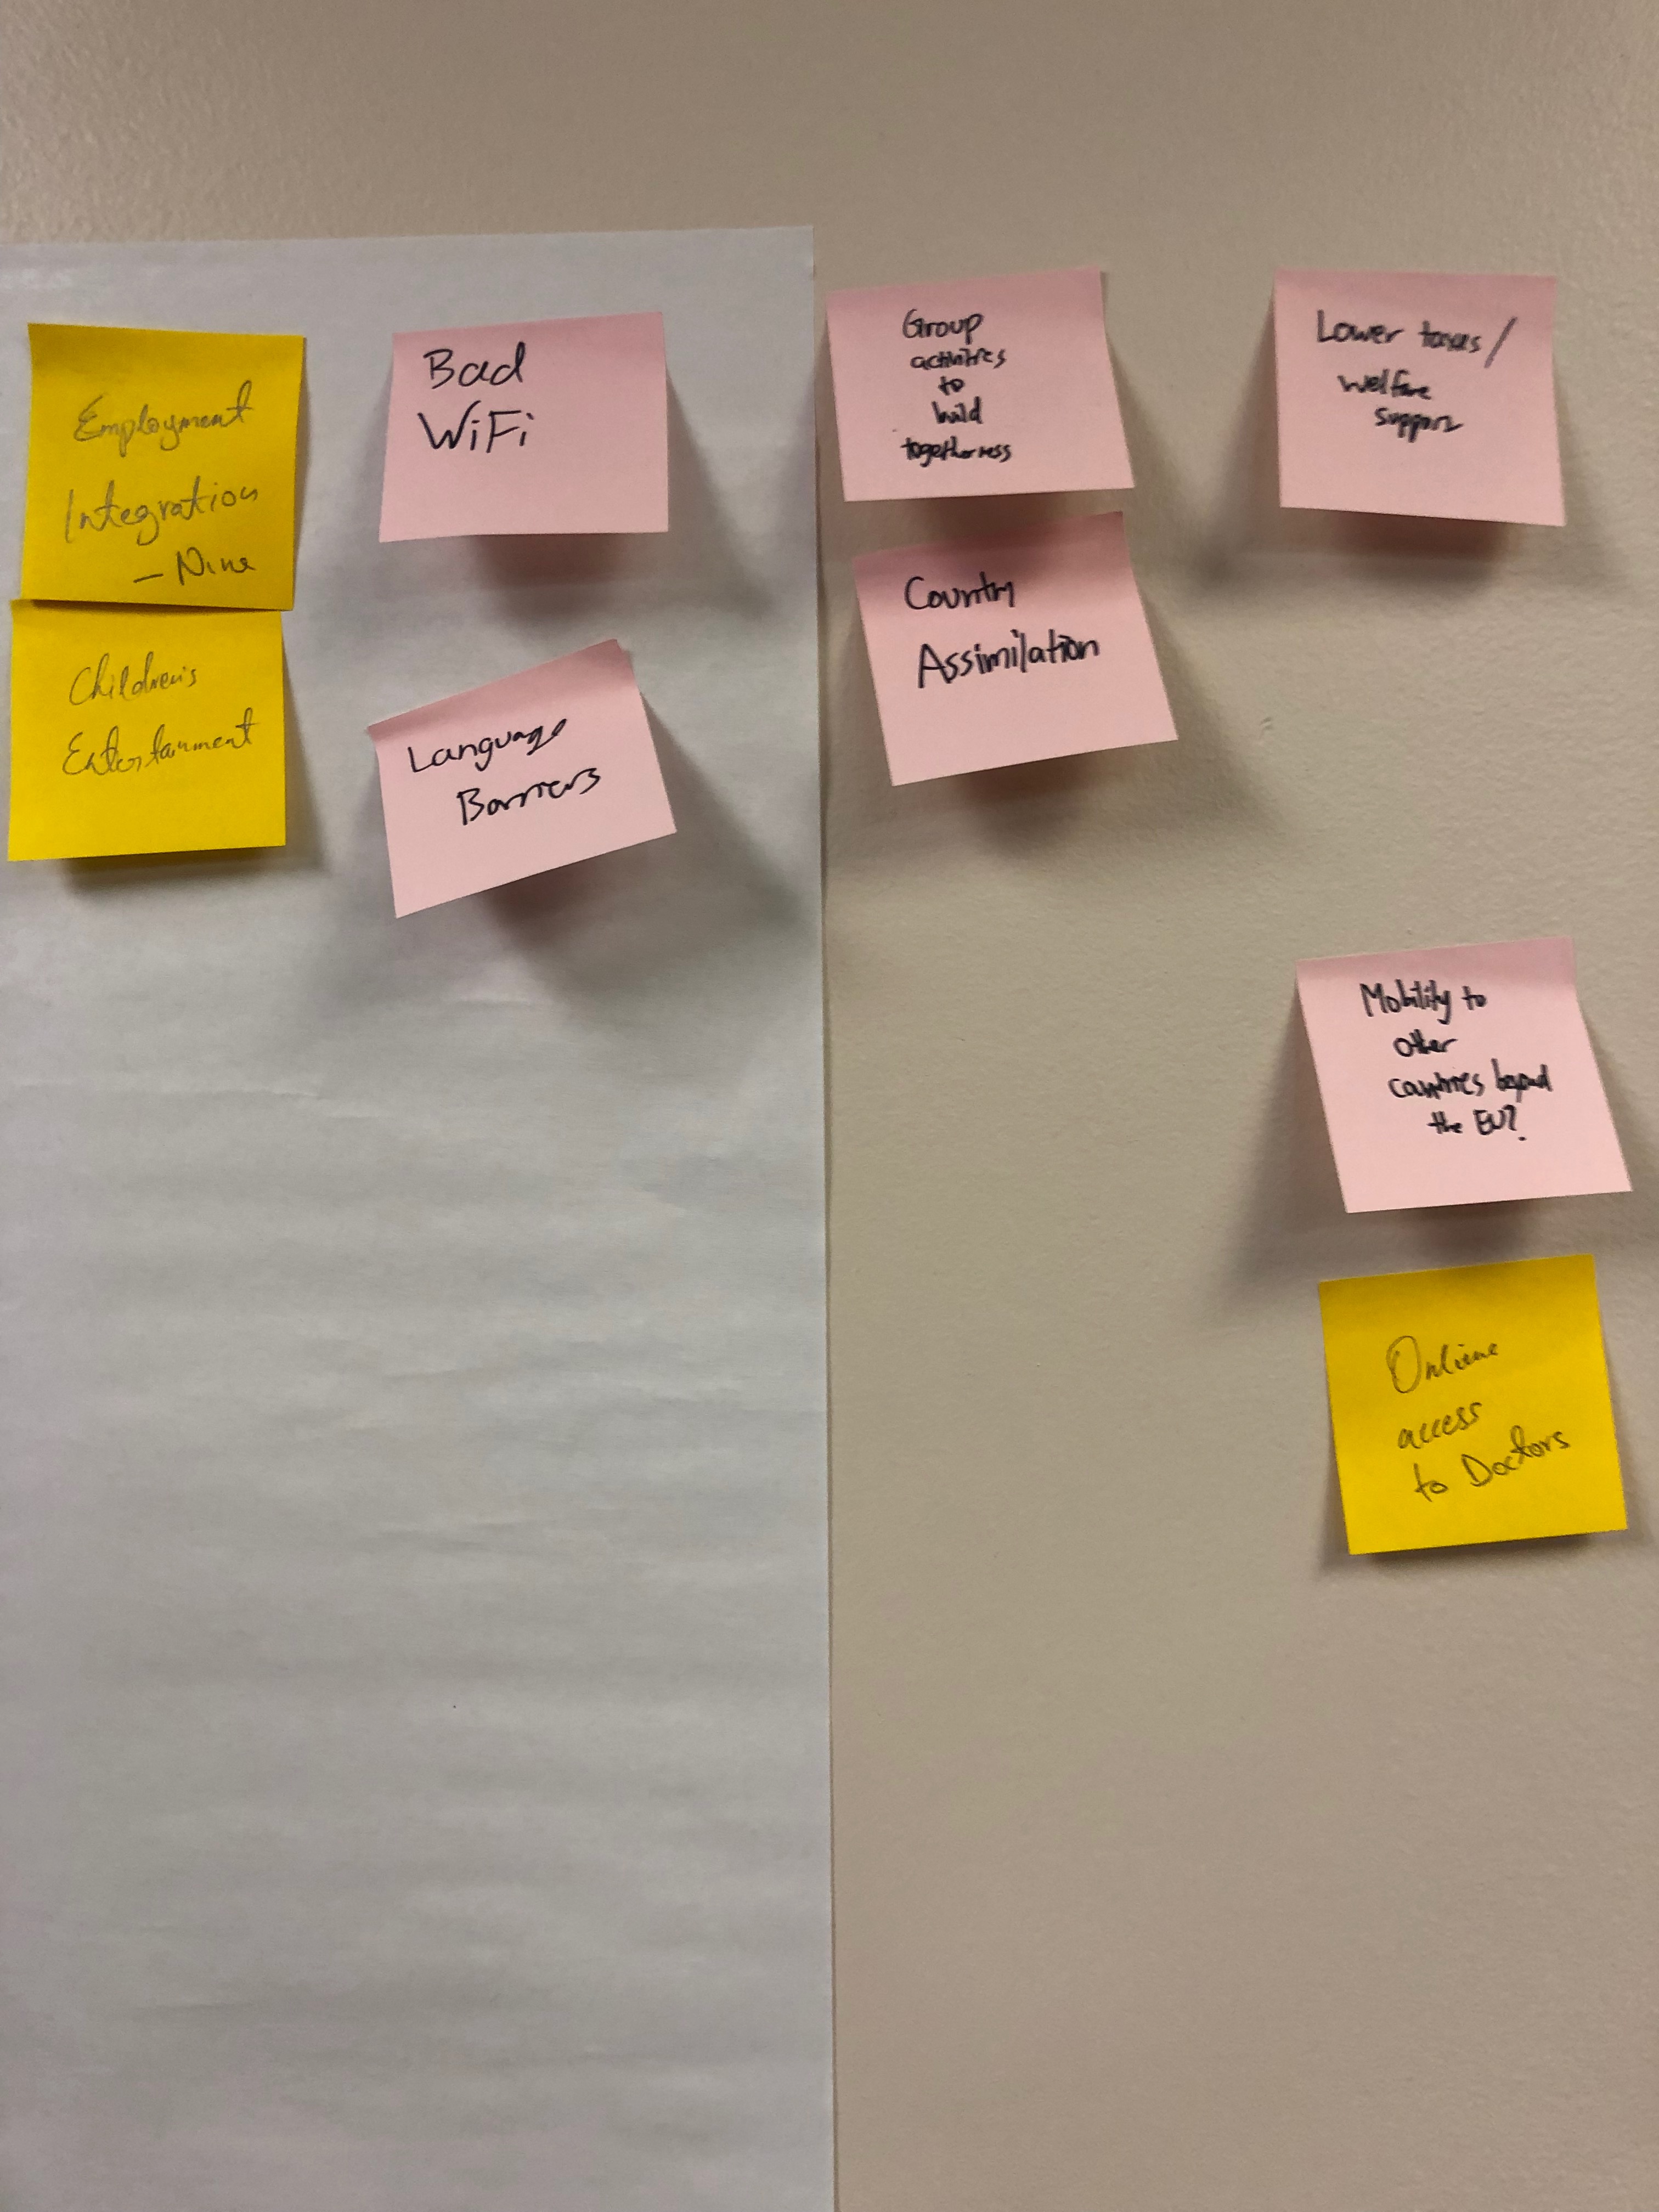 Employment
Integration
- Nina
Children's
Entertainment
Bad
WiFi
Language
Barriers
Group
activities
to
build
togetherness
Country
Assimilation
Lower taxes/
welfare
support
Mobility to
other
countries beyond
the EU?
Online
access
to Doctors